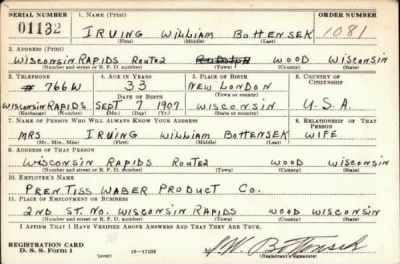 SERIAL NUMBER 1. NAME (Print) ORDER NUMBER
01132 IRVING WILLIAM BOTTENSEK 1081
(First) (Middle) (Last)
2. ADDRESS (Print)
WISCONSIN RAPIDS ROUTE 2 WOOD WISCONSIN
(Number and street or R. F. D. number) (Town) (County) (State)
3. TELEPHONE 4. AGE IN YEARS 5. PLACE OF BIRTH 6. COUNTRY OF CITIZENSHIP
# 766W 33 NEW LONDON
DATE OF BIRTH (Town or county)
WISCONSIN RAPIDS SEPT 7 1907 WISCONSIN U.S.A.
(Exchange) (Number) (Mo.) (Day) (Yr.) (State or country)
7. NAME OF PERSON WHO WILL ALWAYS KNOW YOUR ADDRESS 8. RELATIONSHIP OF THAT PERSON
MRS IRVING WILLIAM BOTTENSEK WIFE
(Mr., Mrs., Miss) (First) (Middle) (Last)
9. ADDRESS OF THAT PERSON
WISCONSIN RAPIDS ROUTE 2 WOOD WISCONSIN
(Number and street or R. F. D. number) (Town) (County) (State)
10. EMPLOYER'S NAME
PRENTISS WABER PRODUCT CO.
11. PLACE OF EMPLOYMENT OR BUSINESS
2ND ST. NO. WISCONSIN RAPIDS WOOD WISCONSIN
(Number and street or R. F. D. number) (Town) (County) (State)
I AFFIRM THAT I HAVE VERIFIED ABOVE ANSWERS AND THAT THEY ARE TRUE.
REGISTRATION CARD
D. S. S. Form 1 (over) 16—17105 Bottensek
(Registrant's signature)